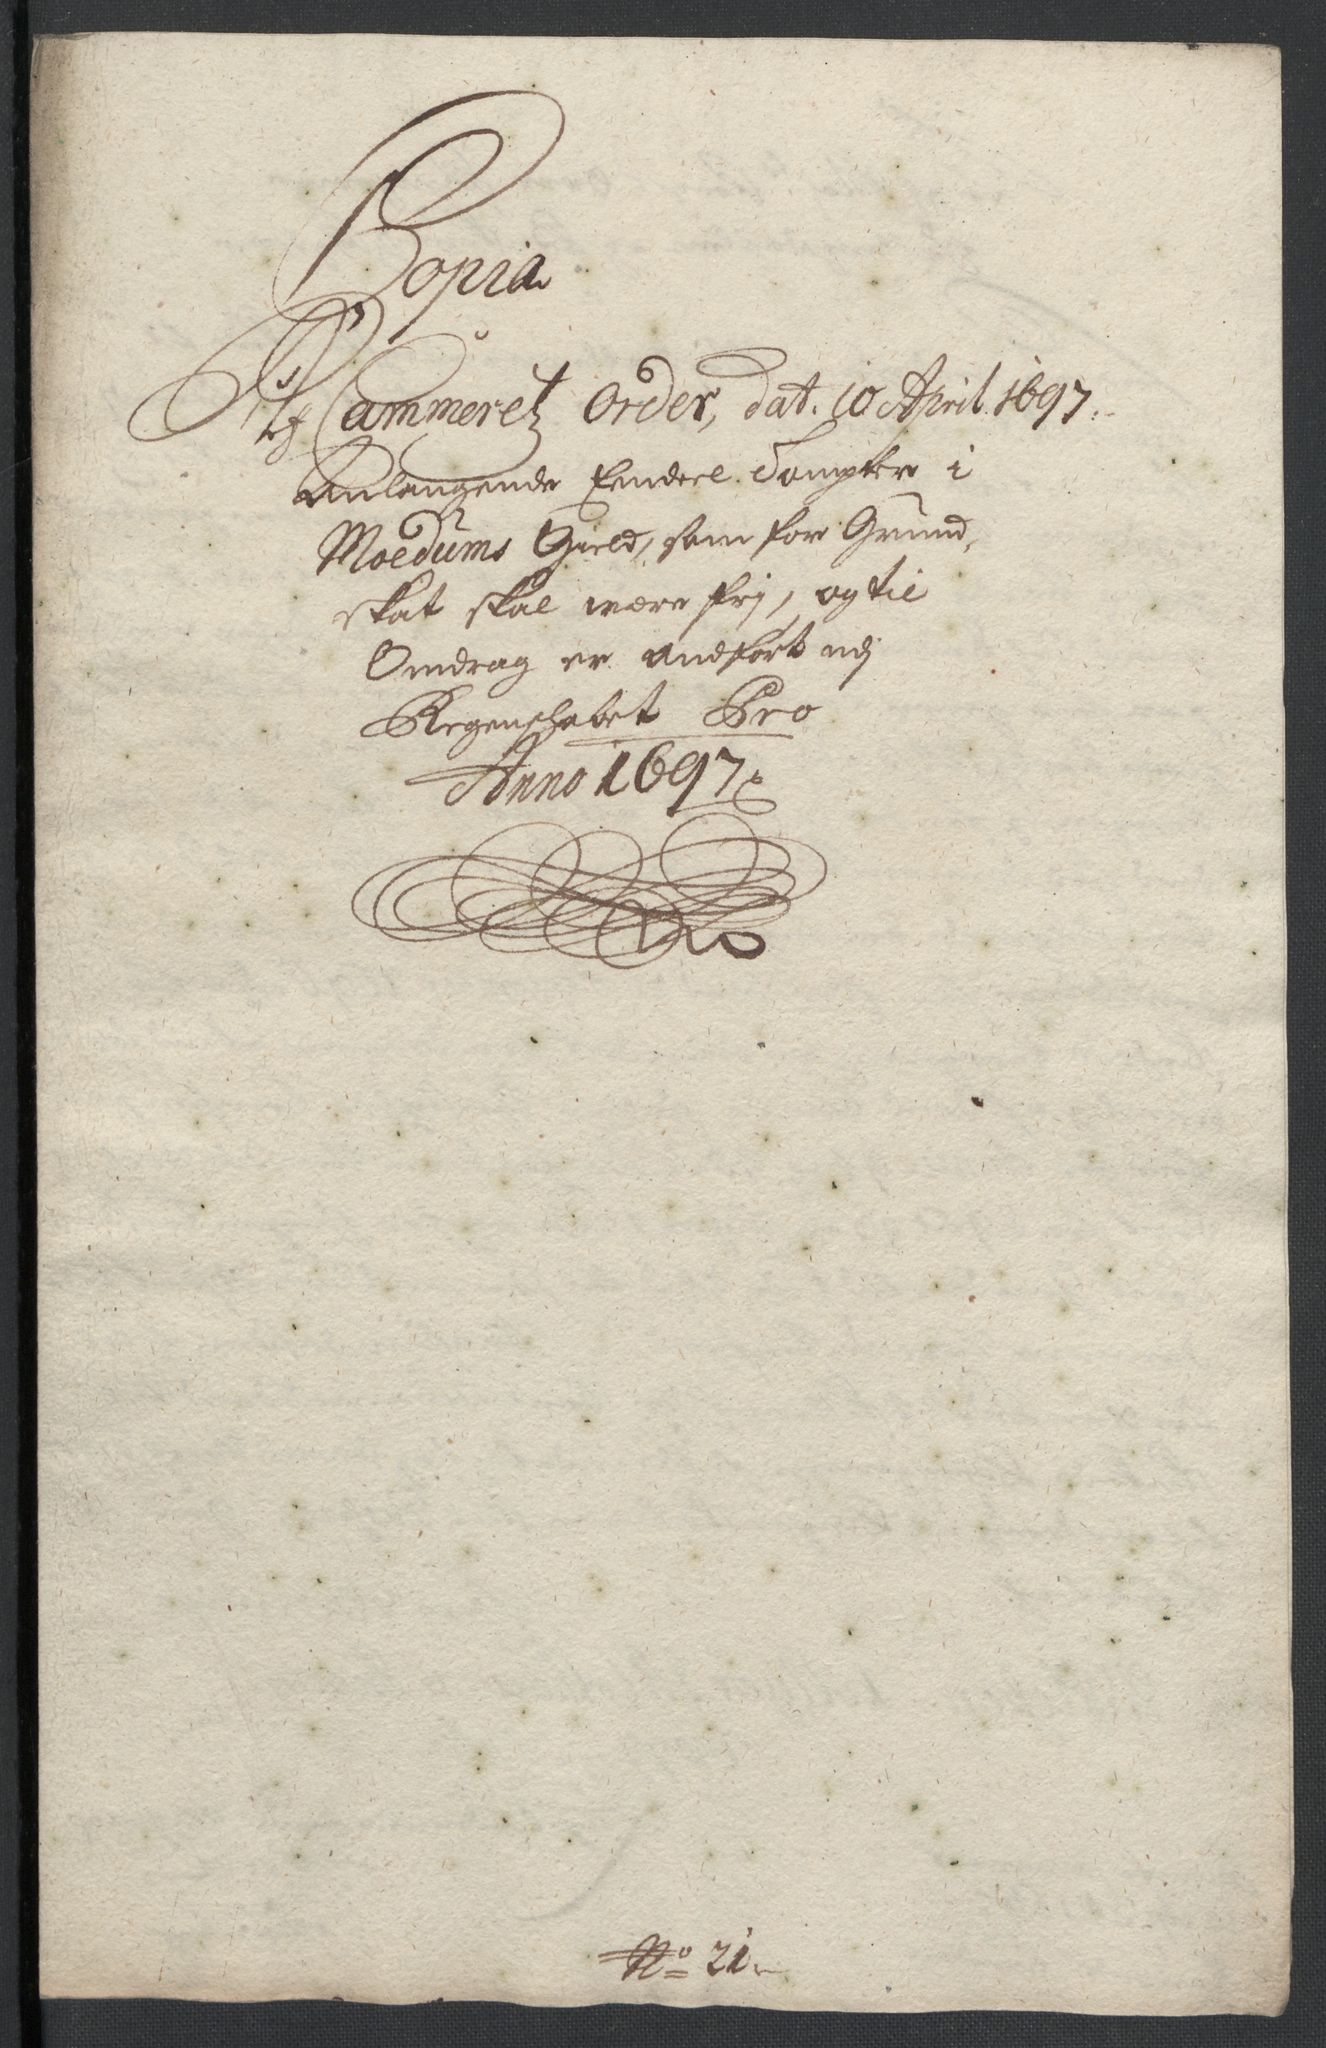 Copia
Af Cammeretz Order, dat. 10 April 1697.
Anlangende Eendeel Tompter i
Moedums Gield, som for Grund,
skat skal være frj, og til
Omdrag er andført udj
Regenschabet Pro
Anno 1697
No 21.